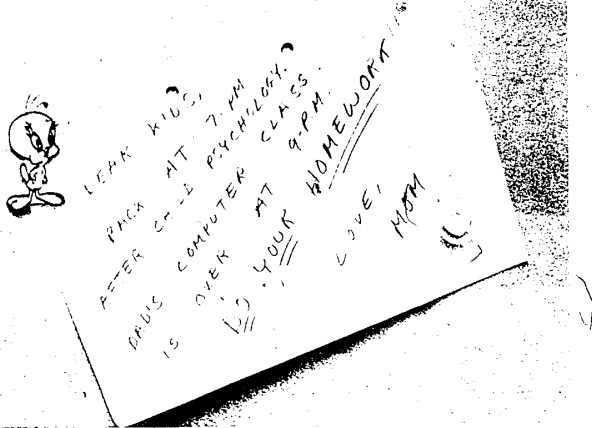 DEAR KIDS,
BACK AT 7 PM
AFTER CHILD PSYCHOLOGY.
DAD'S COMPUTER CLASS
IS OVER AT 9 P.M.
DO YOUR HOMEWORK!!!
LOVE,
MOM